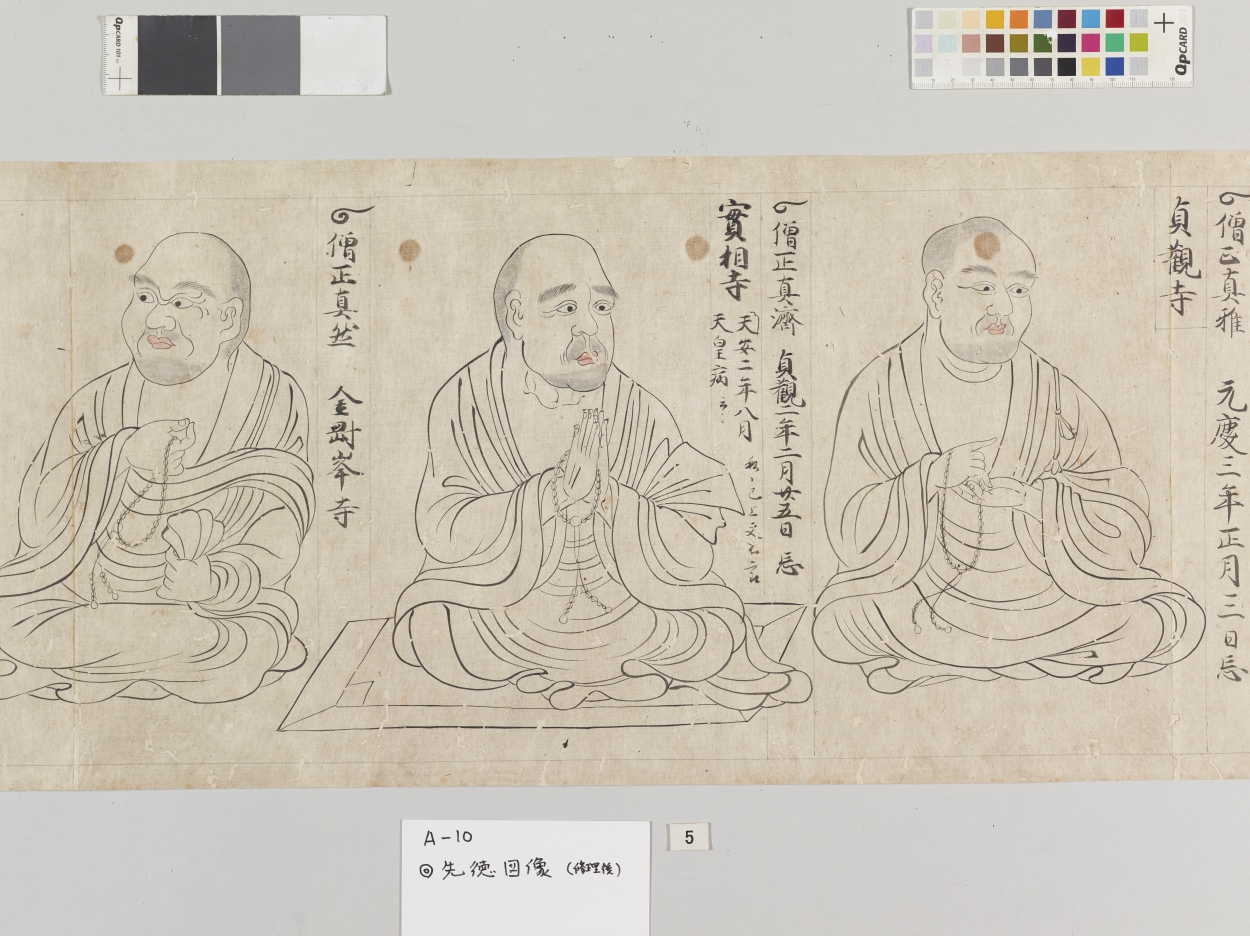 僧正真雅 元慶三年正月三日忌
貞觀寺
僧正真濟 貞觀二年二月廿五日忌
實相寺
天安二年八月
天皇病云々
僧正真然 金剛峯寺
A-10
◎先徳図像 (修理後)
5
QPCARD 101
QPCARD 201